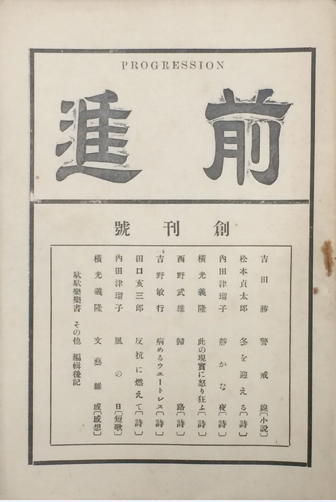 PROGRESSION
前進
創刊號
吉田勝 警戒線〔小説〕
松本貞太郎 冬を迎える〔詩〕
內田津瑠子 靜かな夜〔詩〕
橫光義隆 此の現實に怒り狂ふ〔詩〕
西野武雄 歸路〔詩〕
吉野敏行 病めるウエートレス〔詩〕
田口亥三郎 反抗に燃えて〔詩〕
內田津瑠子 風の日〔短歌〕
橫光義隆 文藝雜感〔感想〕
馱馱欒欒書 その他 編輯後記